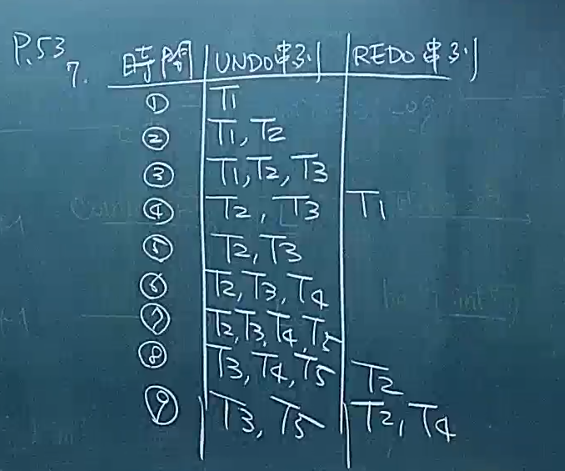 P.53
7. 時間 UNDO串列 REDO串列
① T1
② T1, T2
③ T1, T2, T3
④ T2, T3 T1
⑤ T2, T3
⑥ T2, T3, T4
⑦ T2, T3, T4, T5
⑧ T3, T4, T5 T2
⑨ T3, T5 T2, T4